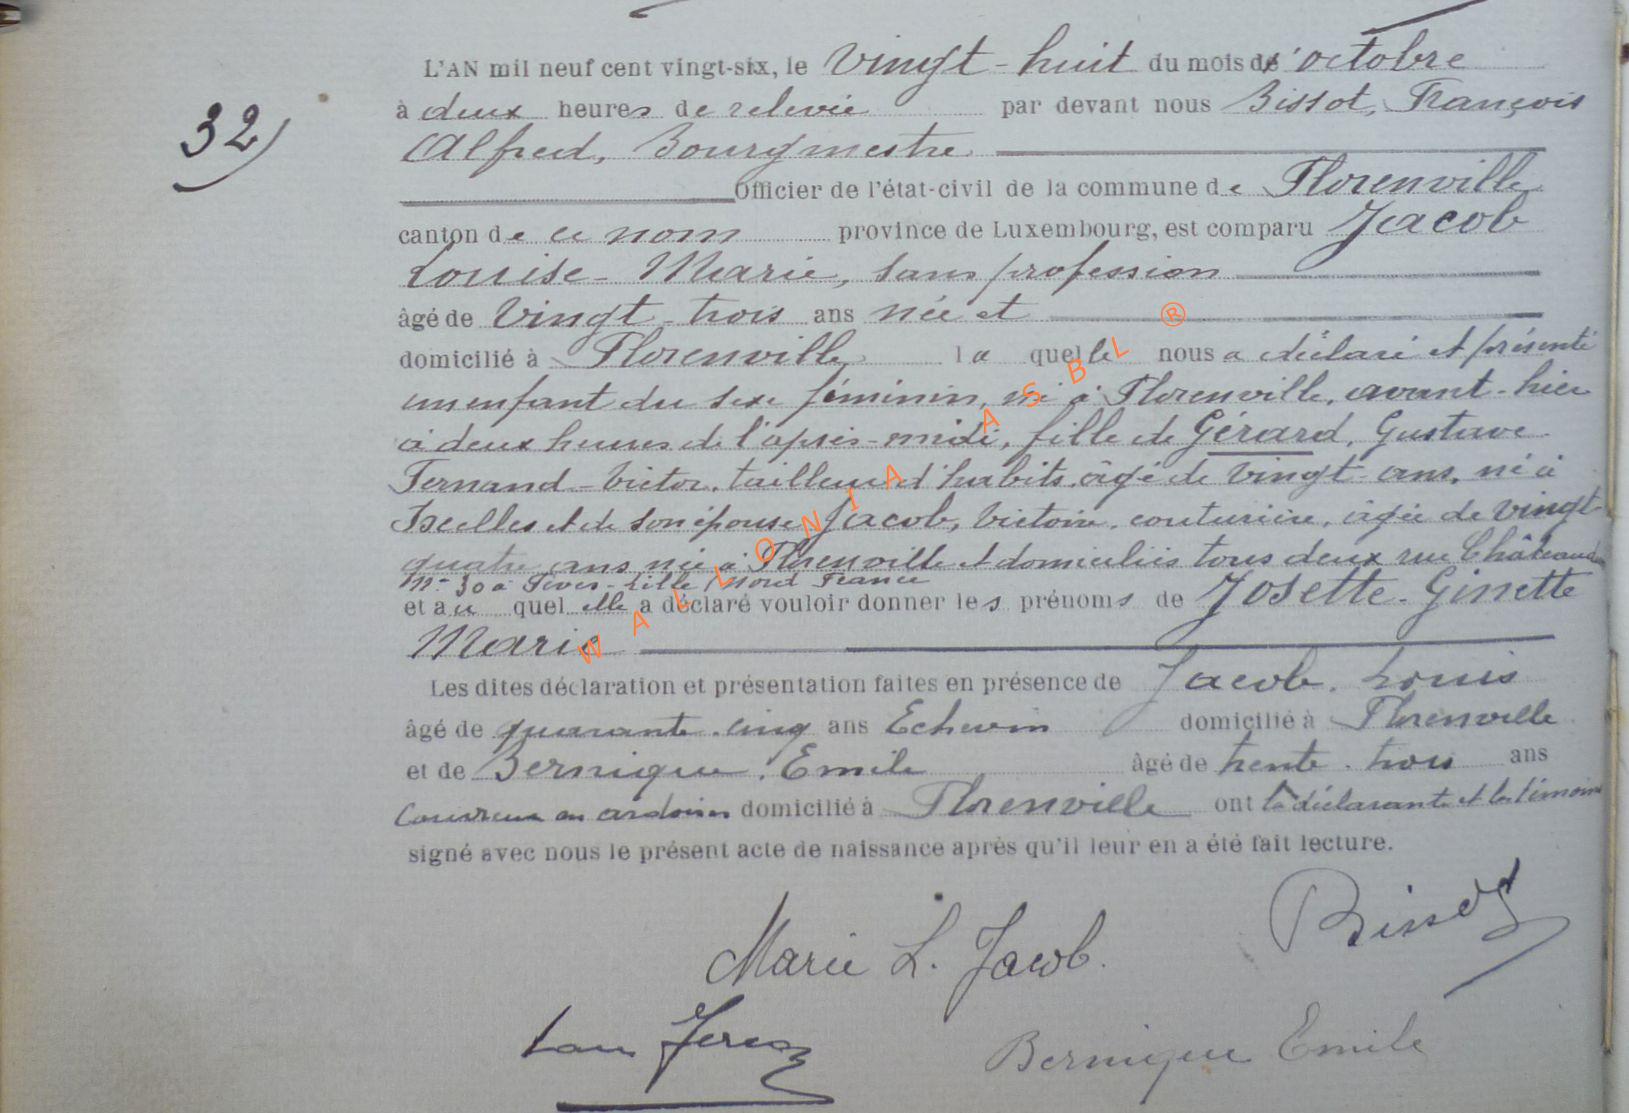 L'AN mil neuf cent vingt-six, le Vingt-huit du mois d'octobre
32)
à deux heures de relevée par devant nous Bissot, François
Alfred, Bourgmestre
Officier de l'état-civil de la commune de Florenville
canton de ce nom province de Luxembourg, est comparu Jacob
Louise-Marie, sans profession
âgé de Vingt-trois ans née et
domicilié à Florenville laquelle nous a déclaré et présenté
un enfant du sexe féminin, né à Florenville, avant-hier
à deux heures de l'après-midi, fille de Gérard, Gustave
Fernand-Victor, tailleur d'habits, âgé de vingt ans, né à
Ixelles et de son épouse Jacob, Victoire, couturière, âgée de vingt
quatre ans née à Florenville et domiciliés tous deux rue Châteaudun
N° 30 à Fives-Lille (Nord France
et auquel elle a déclaré vouloir donner les prénoms de Josette-Ginette
Marie
Les dites déclaration et présentation faites en présence de Jacob, Louis
âgé de quarante-cinq ans Echevin domicilié à Florenville
et de Bernique, Emile âgé de trente-trois ans
Couvreur en ardoises domicilié à Florenville ont la déclarante et les témoins
signé avec nous le présent acte de naissance après qu'il leur en a été fait lecture.
Bissot
Marie L. Jacob.
Bernique Emile
WALLONIA ASBL ®